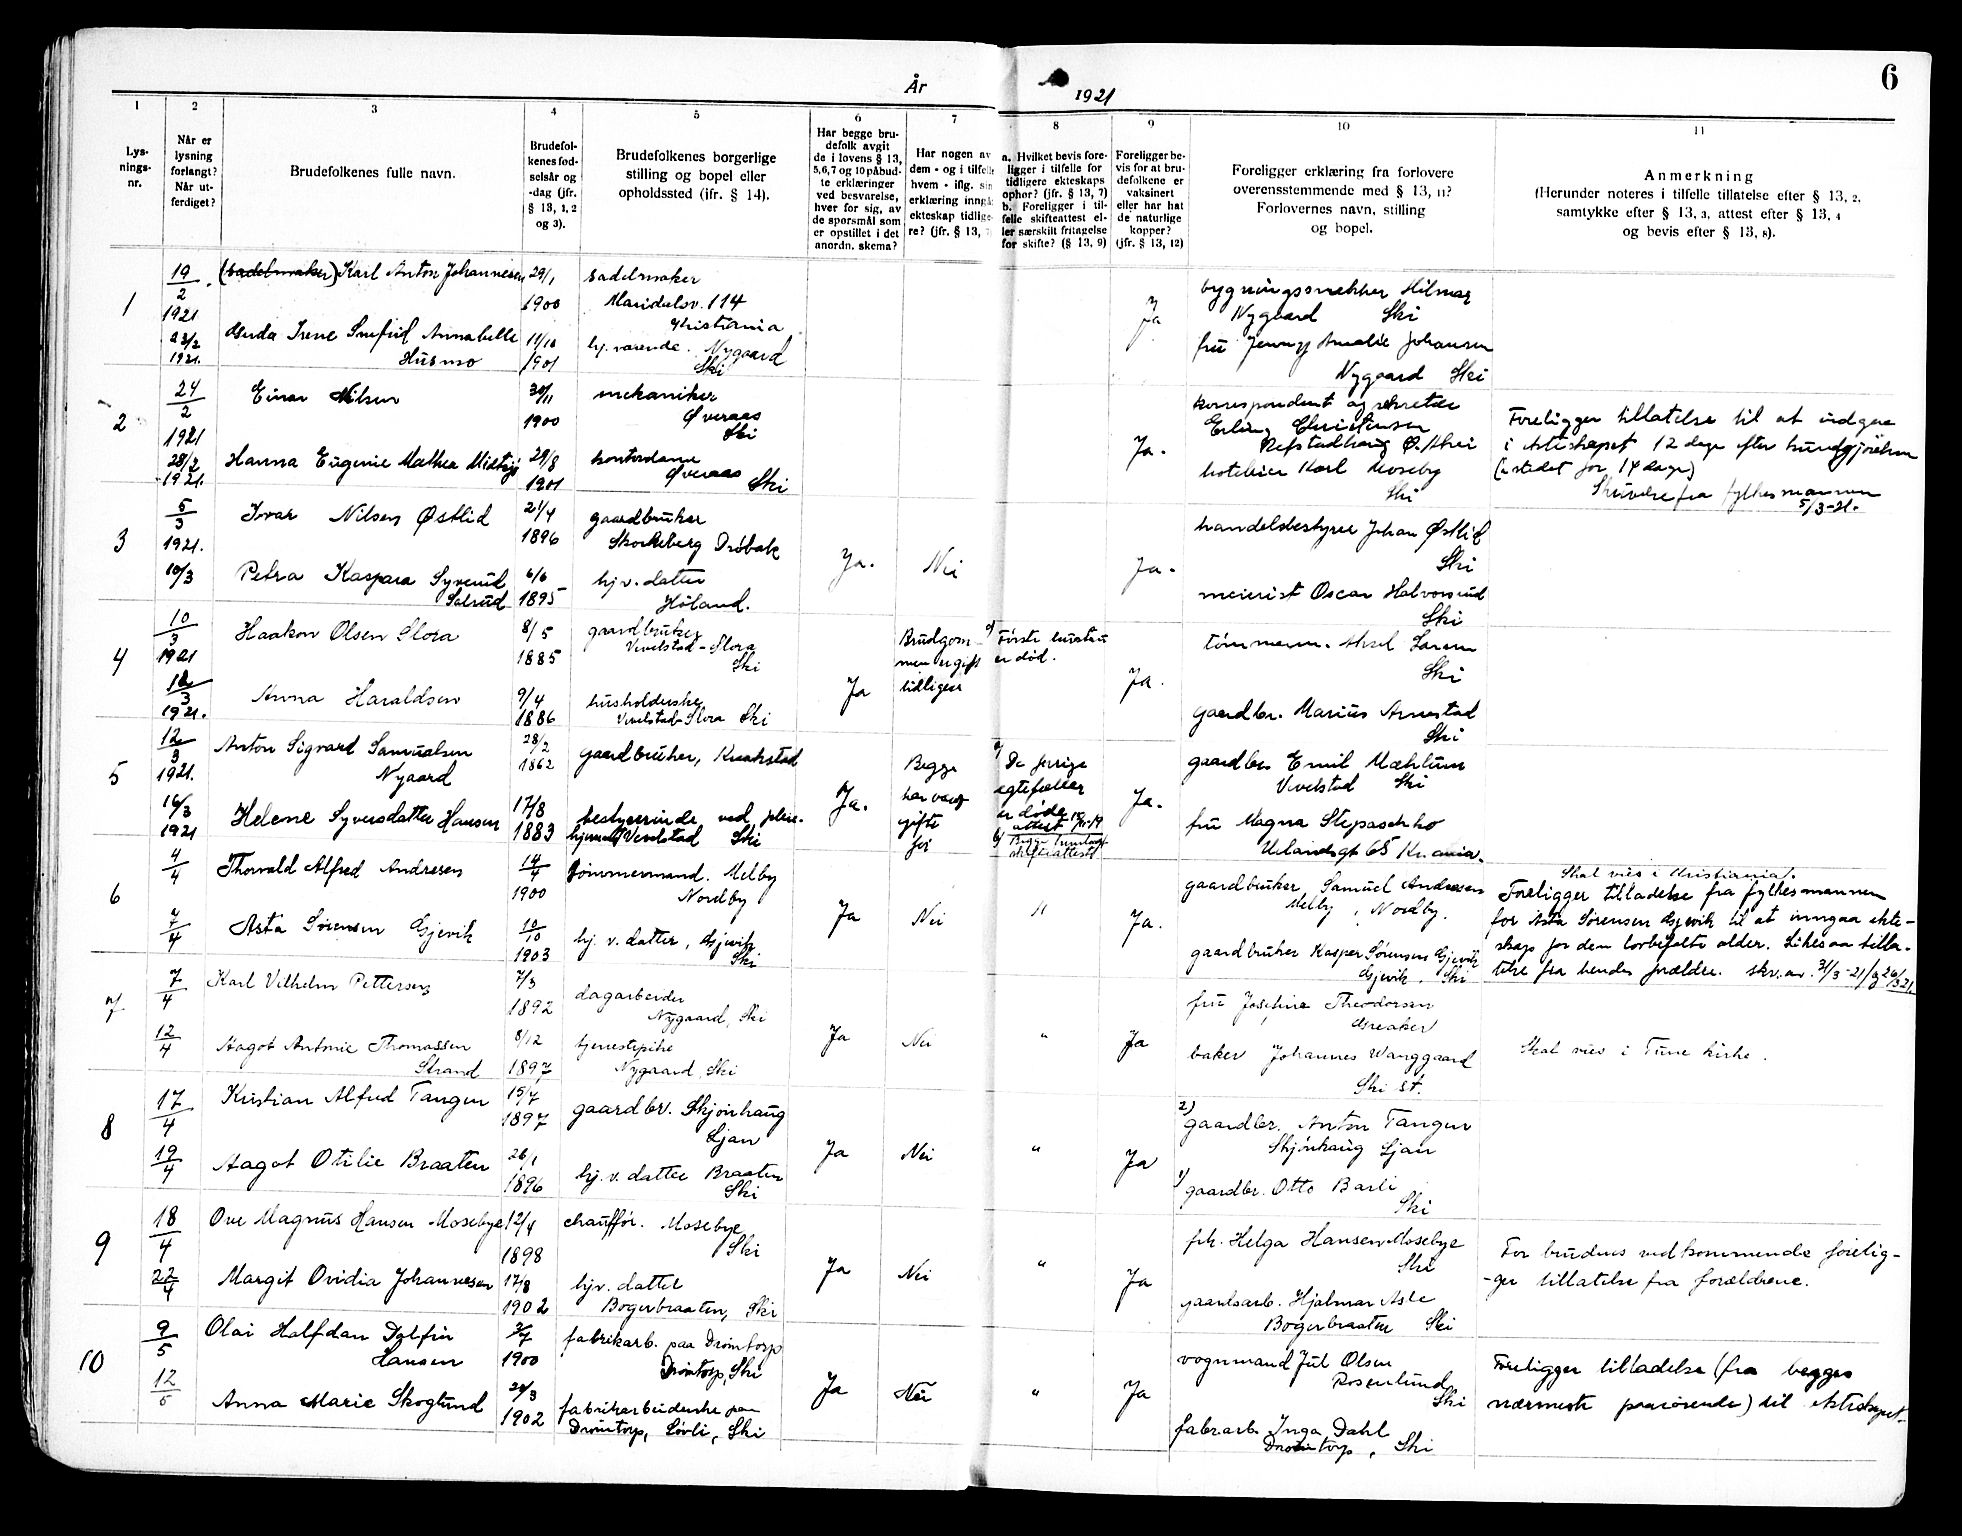 6
År 1921
1
Lys-
nings-
nr.
2
Når er
lysning
forlangt?
Når ut-
ferdiget?
3
Brudefolkenes fulle navn.
4
Brudefol-
kenes fød-
selsår og
-dag (jfr.
§ 13, 1, 2
og 3).
5
Brudefolkenes borgerlige
stilling og bopel eller
opholdssted (jfr. § 14).
6
Har begge bru-
defolk avgit
de i lovens § 13,
5, 6, 7 og 10 påbud-
te erklæringer
ved besvarelse,
hver for sig, av
de spørsmål som
er opstillet i det
anordn. skema?
7
Har nogen av
dem - og i tilfelle
hvem - iflg. sin
erklæring inngå
ekteskap tidlige-
re? (jfr. § 13, 7
8
a. Hvilket bevis fore-
ligger i tilfelle for
tidligere ekteskaps
ophør? (jfr. § 13, 7)
b. Foreligger i til-
felle skifteattest el-
ler særskilt fritagelse
for skifte? (§ 13, 9)
9
Foreligger be-
vis for at bru-
defolkene er
vaksinert
eller har hat
de naturlige
kopper?
(jfr. § 13, 12)
10
Foreligger erklæring fra forlovere
overensstemmende med § 13, 11?
Forlovernes navn, stilling
og bopel.
11
Anmerkning
(Herunder noteres i tilfelle tillatelse efter § 13, 2,
samtykke efter § 13, 3, attest efter § 13, 4
og bevis efter § 13, 8).
1
19/2 1921
23/2 1921.
(sadelmaker) Karl Anton Johannesen
Gerda Irene Snefrid Annabelle
Husmo
29/1 1900
11/10 1901
sadelmaker
Maridalsv. 114
Kristiania
hj. værende. Nygaard
Ski
Ja
bygningssnekker Hilmar
Nygaard Ski
fru Jenny Amalie Johansen
Nygaard Ski
2
24/2 1921
28/2 1921.
Einar Nilsen
Hanna Eugenie Mathea
30/11 1900
29/8 1901
mekaniker
Øveraas
Ski
kontordame
Øveraas Ski
Ja.
korrespondent og sekretær
Erling Christensen
Refstadhaug Ø. Aker
hotelier Karl Moseby
Ski
Foreligger tillatelse til at indgaa
i ekteskapet 12 dage efter kundgjørelsen
(istedet for 14 dage)
Skrivelse fra fylkesmannen
5/3-21.
3
5/3 1921.
10/3
Ivar Nilsen Østlid
Petra Kaspara Syverud
Salrud
21/4 1896
6/6 1895
gaardbruker
Skorkeberg Drøbak
hj. v. datter
Høland.
Ja.
Nei
Ja.
handelsbestyrer Johan Østlid
Ski
meierist Oscar Halvorsrud
Ski
4
10/3 1921
12/3 1921.
Haakon Olsen Slora
Anna Haraldsen
8/5 1885
9/4 1886
gaardbruker
Vevelstad-Slora
Ski
husholderske
Vevelstad-Slora Ski
Ja
Brudgom-
men er gift
tidligere
a) Første hustru
er død.
Ja.
tømmerm. Aksel Larsen
Ski
gaardbr. Marius Arnestad
Ski
5
12/3 1921.
16/3 1921
Anton Sigvard Samuelsen
Nygaard
Helene Syversdatter Hansen
28/2 1862
17/8 1883
gaardbruker, Kraakstad
bestyrerinde ved pleie-
hjemmet Vevelstad Ski
Ja.
Begge
har været
gifte
før
a) De forrige
egtefæller
er døde
attest
b) Begge fremlagt
skifteattest
Ja.
gaardbr. Emil Mæhlum
Vevelstad Ski
fru Magna Stepaschko
Uelandsgt 65 Kr.ania.
6
4/4
7/4
Thorvald Alfred Andresen
Asta Sørensen Gjevik
14/4 1900
10/10 1903
tømmermand. Melby
Nordby
hj. v. datter, Gjevik
Ski
Ja
Nei
"
Ja.
gaardbruker Samuel Andresen
Melby, Nordby.
gaardbruker Kasper Sørensen Gjevik
Gjevik. Ski
Skal vies i Kristiania.
Foreligger tilladelse fra fylkesmannen
for Asta Sørensen Gjevik til at inngaa ekte-
skap før den lovbefalte alder. Likesaa tilla-
telse fra hendes forældre. skr. av. 31/3-21 og 26/3 21.
7
7/4
12/4
Karl Vilhelm Pettersen
Aagot Antonie Thomassen
Strand
7/3 1892
8/12 1897
dagarbeider
Nygaard, Ski
tjenestepike
Nygaard, Ski
Ja
Nei
"
Ja
fru Josefine Theodorsen
Greaker
baker Johannes Wanggaard
Ski st.
Skal vies i Tune kirke.
8
17/4
19/4
Kristian Alfred Tangen
Aagot Otilie Braaten
15/7 1897
26/1 1896
gaardbr. Skjønhaug
Ljan
hj. v. datter Braaten
Ski
Ja
Nei
"
Ja
2) gaardbr. Anton Tangen
Skjønhaug Ljan
1) gaardbr. Otto Barli
Ski
9
18/4
22/4
Ove Magnus Hansen Mosebye
Margit Ovidia Johannesen
12/4 1898
17/8 1902
chauffør. Mosebye
Ski
hj v. datter
Bøgerbraaten, Ski
Ja
Nei
"
Ja
frk. Helga Hansen Mosebye
Ski
gaardsarb. Hjalmar Asle
Bøgerbraaten Ski
For brudens vedkommende forelig-
-ger tillatelse fra forældrene.
10
9/5
12/5
Olai Halfdan Dolfin
Hansen
Anna Marie Skoglund
3/7 1900
29/3 1902
fabrikarb. paa Drømtorp
Drømtorp, Ski
fabrikarbeiderske paa
Drømtorp, Løvli, Ski
Ja
Nei
"
Ja
vognmand Jul Olsen
Rosenlund
Ski
fabr.arb. Inga Dahl
Drømtorp, Ski
Foreligger tilladelse (fra begges
nærmeste paarørende) til ekteskapet.